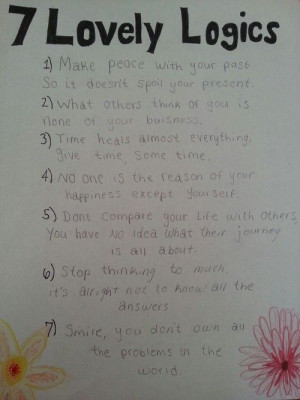 7 Lovely Logics
1) Make peace with your past
So it doesn't spoil your present.
2) What others think of you is
None of your buisness.
3) Time heals almost everything,
give time, some time.
4) No one is the reason of your
happiness except yourself.
5) Dont compare your life with others
You have NO idea what their journey
is all about.
6) Stop thinking to much,
it's alright not to know all the
answers
7) Smire, you don't own all
the problems in the
world.